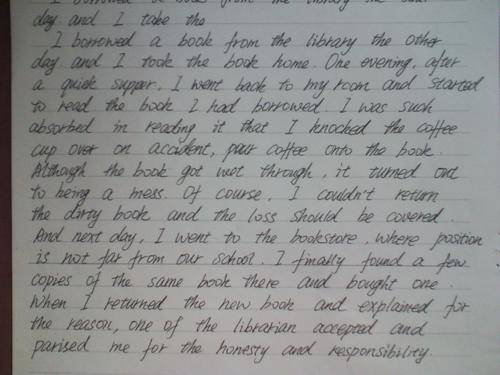 I borrowed a book from the library the other
day. and I take the
I borrowed a book from the library the other
day. and I took the book home. One evening, after
a quick supper, I went back to my room and started
to read the book I had borrowed. I was such
absorbed in reading it that I knocked the coffee
cup over on accident, pour coffee onto the book.
Although the book got wet through, it turned out
to being a mess. Of course, I couldn't return
the dirty book and the loss should be covered.
And next day, I went to the bookstore, where position
is not far from our school. I finally found a few
copies of the same book there and bought one.
When I returned the new book and explained for
the reason, one of the librarian accepted and
parised me for the honesty and responsibility.